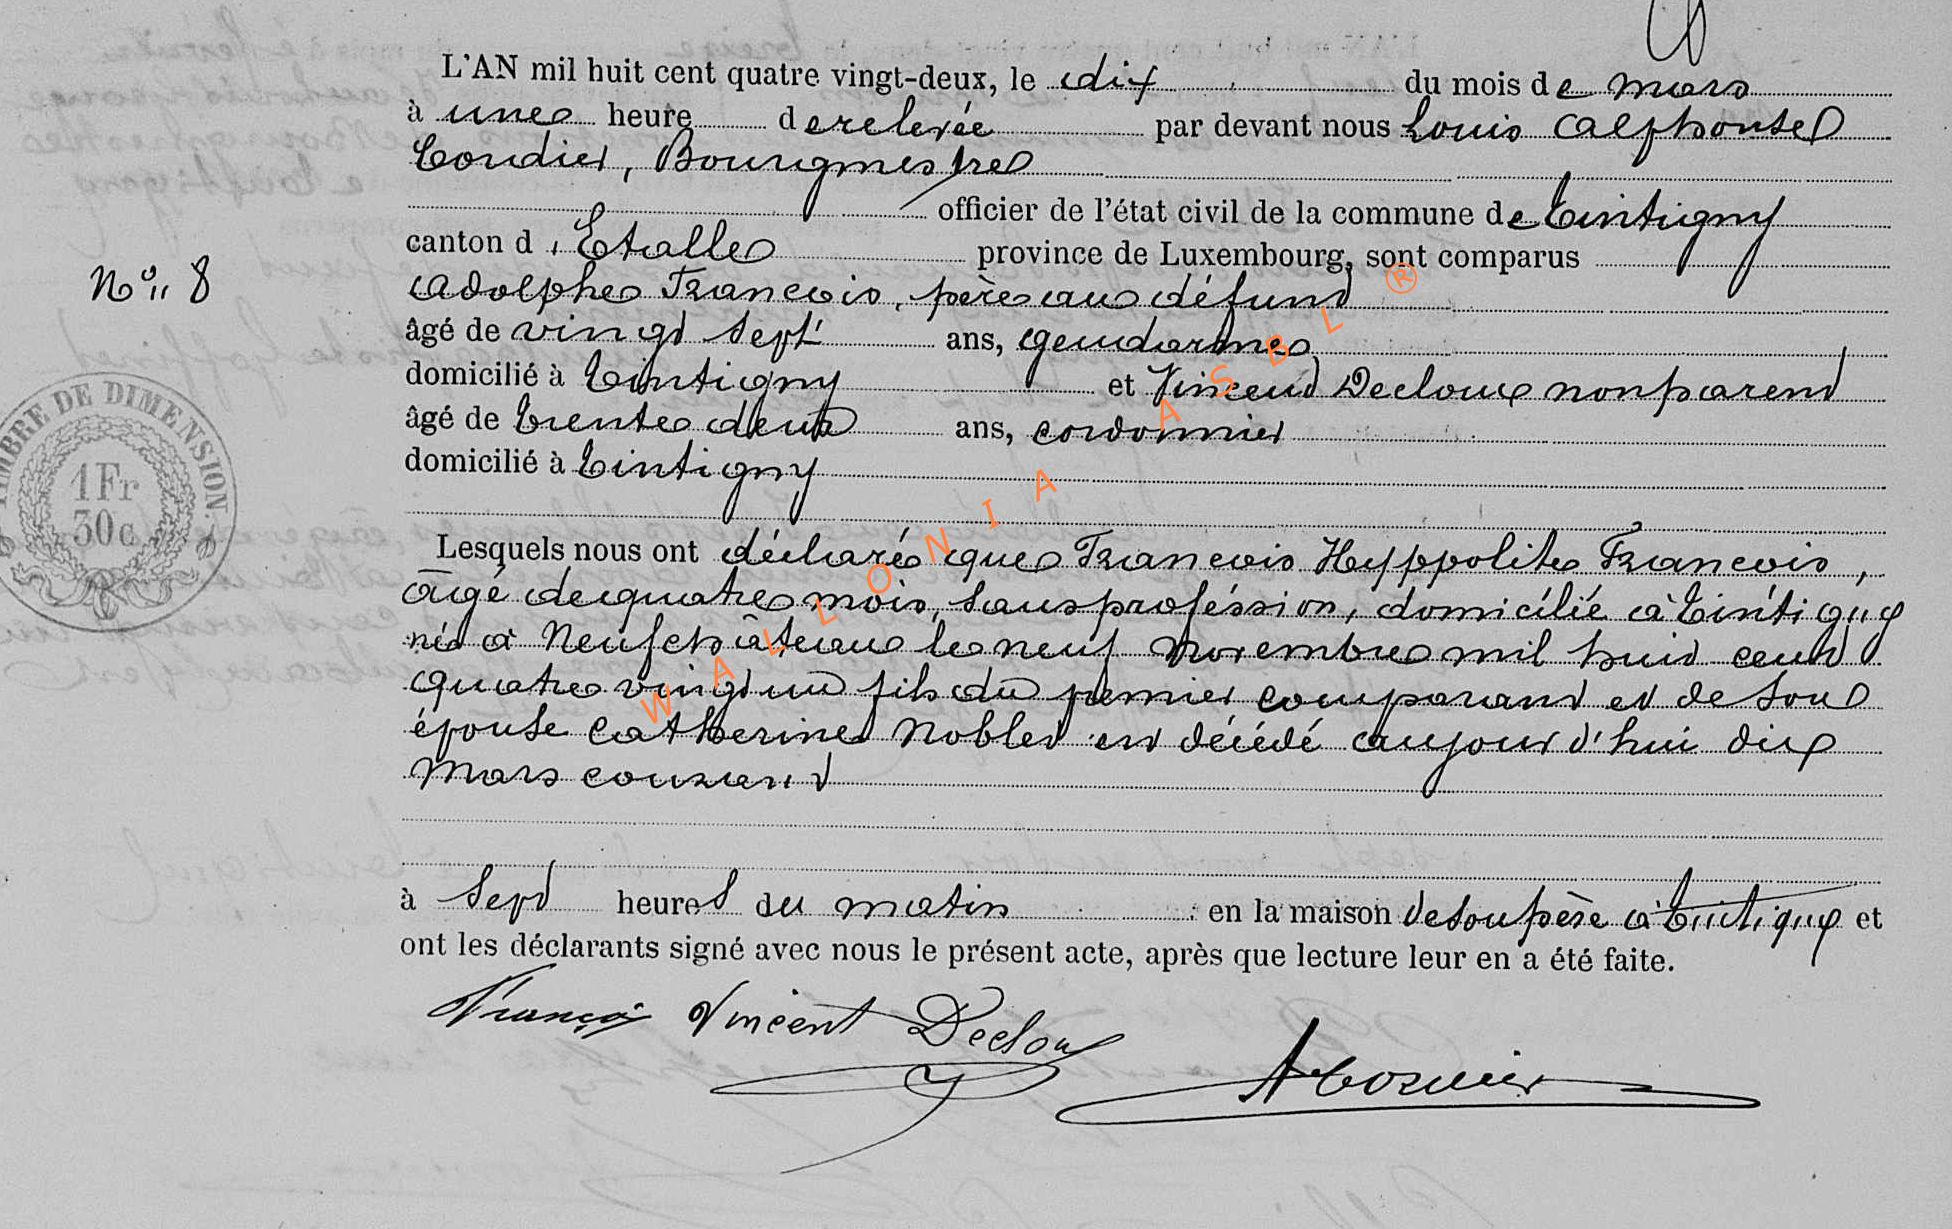 L'AN mil huit cent quatre vingt-deux, le dix du mois de mars
à une heure de relevée par devant nous Louis Alphonse
Cordier, Bourgmestre
officier de l'état civil de la commune de Tintigny
canton d'Etalle province de Luxembourg, sont comparus
N° 8
Adolphe Francois, père au défunt
âgé de vingt sept ans, gendarme,
domicilié à Tintigny et Vincent Decloux non parent
âgé de trente deux ans, cordonnier
domicilié à Tintigny
TIMBRE DE DIMENSION
1 Fr
30 c
Lesquels nous ont déclaré que Francois Hyppolite Francois,
âgé de quatre mois, sans proféssion, domicilié à Tintigny
né à Neufchâteau le neuf Novembre mil huit cent
quatre vingt un fils du premier comparant et de son
épouse Catherine Noblet est décédé aujourd'hui dix
Mars courant
à Sept heures du matin en la maison de son père à Tintigny et
ont les déclarants signé avec nous le présent acte, après que lecture leur en a été faite.
François Vincent Decloux
A Cordier
WALLONIA ASBL ®